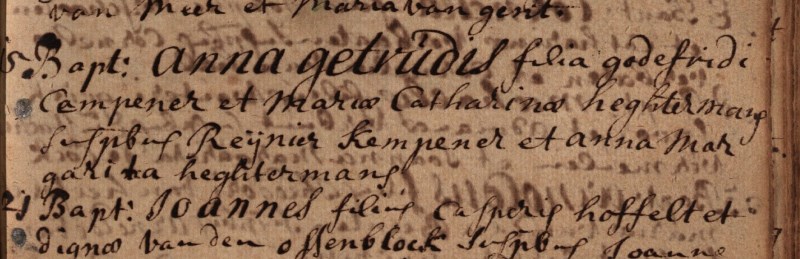 van Meer et Maria van gent.
15 Bapt: Anna getrudis filia godefridi
Cempener et Mariæ Catharinæ heghtermans
suspbus Reijnier Kempener et anna Mar
garita heghtermans
21 Bapt: Joannes filius Casperis hoffelt et
dignæ van den ossenblock suspbus Joanne